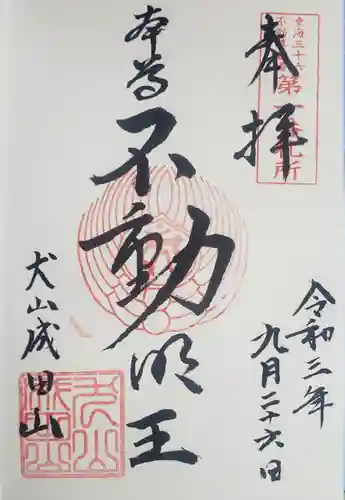 奉拝
東海三十六
第一札所
令和三年
九月二十六日
本尊
不動明王
犬山成田山